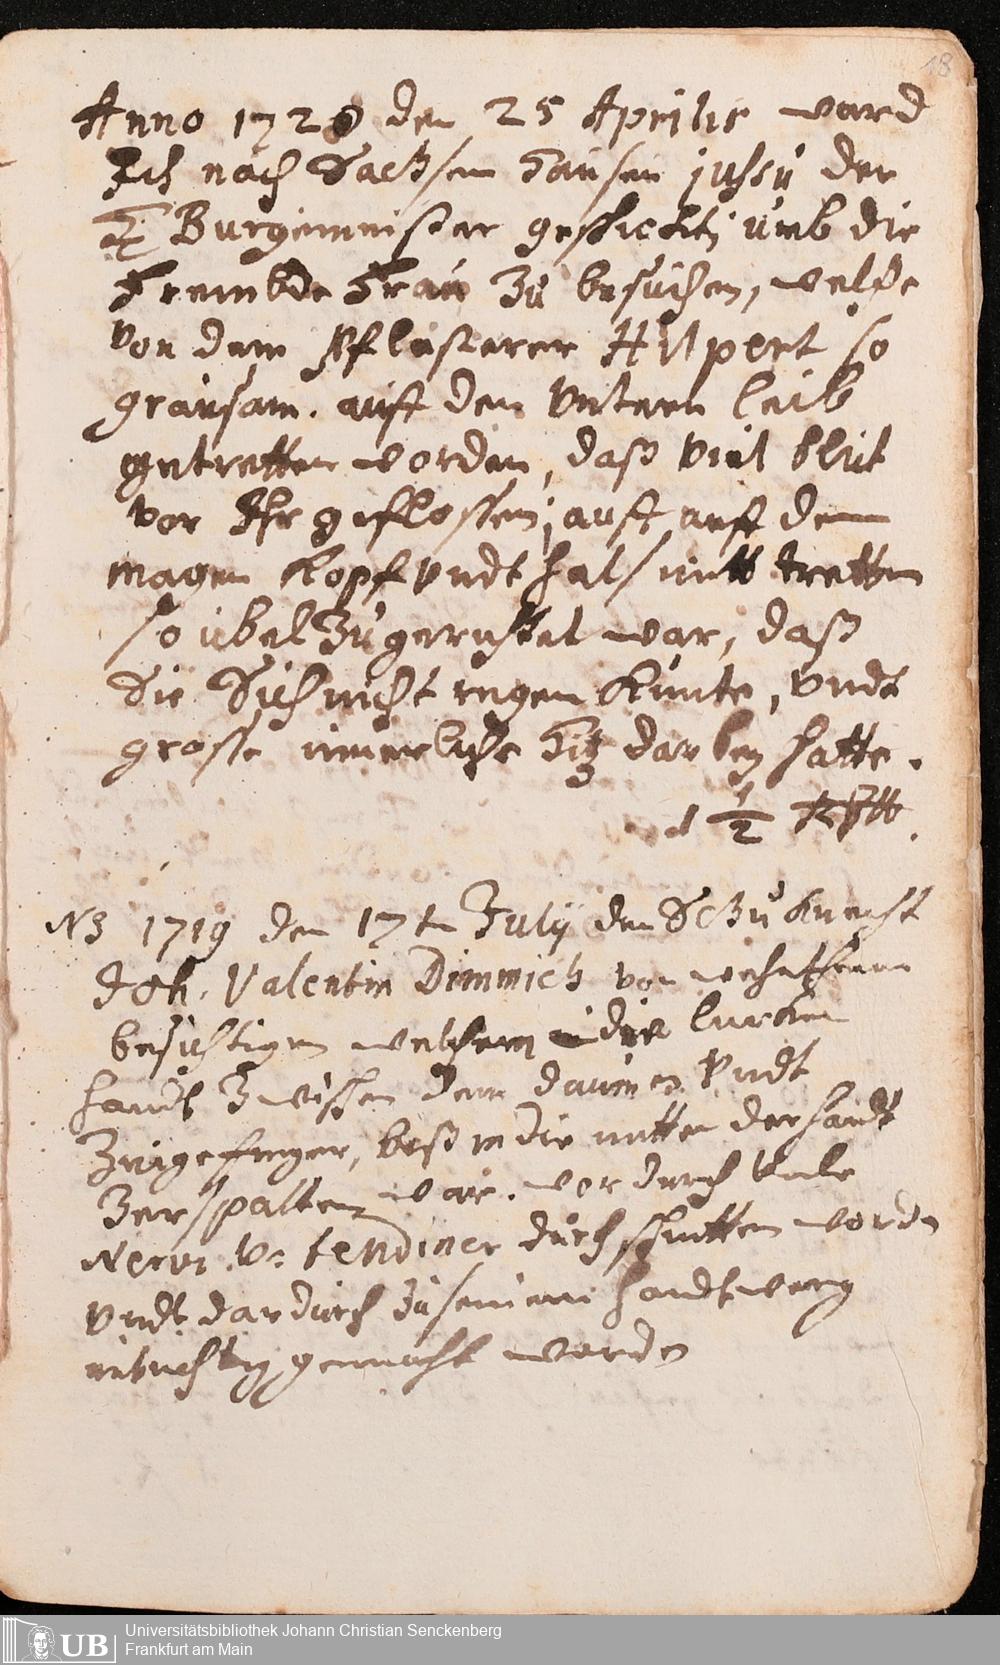 18
Anno 1720 den 25 Aprilis ward
Ich nach Sachsen hausen jussu der
H Burgermeister geschickt, umb die
Frembde Frau zu besuchen, welche
von dem Pflasterer Hilpert so
grausam auff den Untern leib
getretten worden, daß viel blut
von Ihr geflossen; auch auff dem
magen Kopf undt hals mitt tretten
so übel zugerichtet war, daß
Sie Sich nicht regen kunte, undt
grosse innerliche Hitz darbey hatte.
d 1/2
NB 1719 den 17tn July den Schu Knecht
Joh. Valentin Dimmich von
besichtigen welchem die lincken
handt Zwischen dem daumen Undt
Zeigefinger, biß in die mitten der handt
Zerspalten war. wordurch viele
Nervi tendines durchschnitten worden
undt dardurch zu seinem handtwerg
untüchtig gemacht worden
UB Universitätsbibliothek Johann Christian Senckenberg
Frankfurt am Main